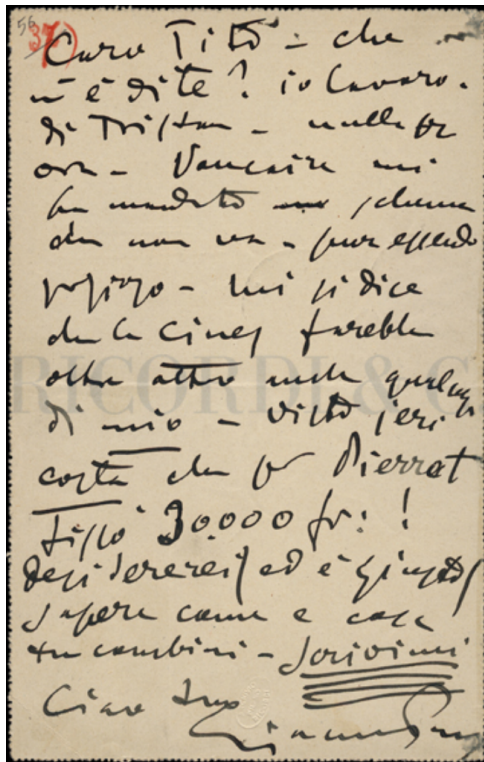 56
37)
Caro Tito - che
n'è di te? io lavoro.
di Tristan - nulla per
ora - Vaucaire mi
ha mandato schema
che non va - pur essendo
grazioso - mi si dice
che la Cines farebbe
oltre altro anche qualcosa
di mio - visto jeri
Costa che per Pierrot
fissò 30.000 fr: !
desidererei (ed è giusto)
sapere come e cosa
tu combini - Scrivimi
Ciao tuo
Giacomo
RICORDI & C.